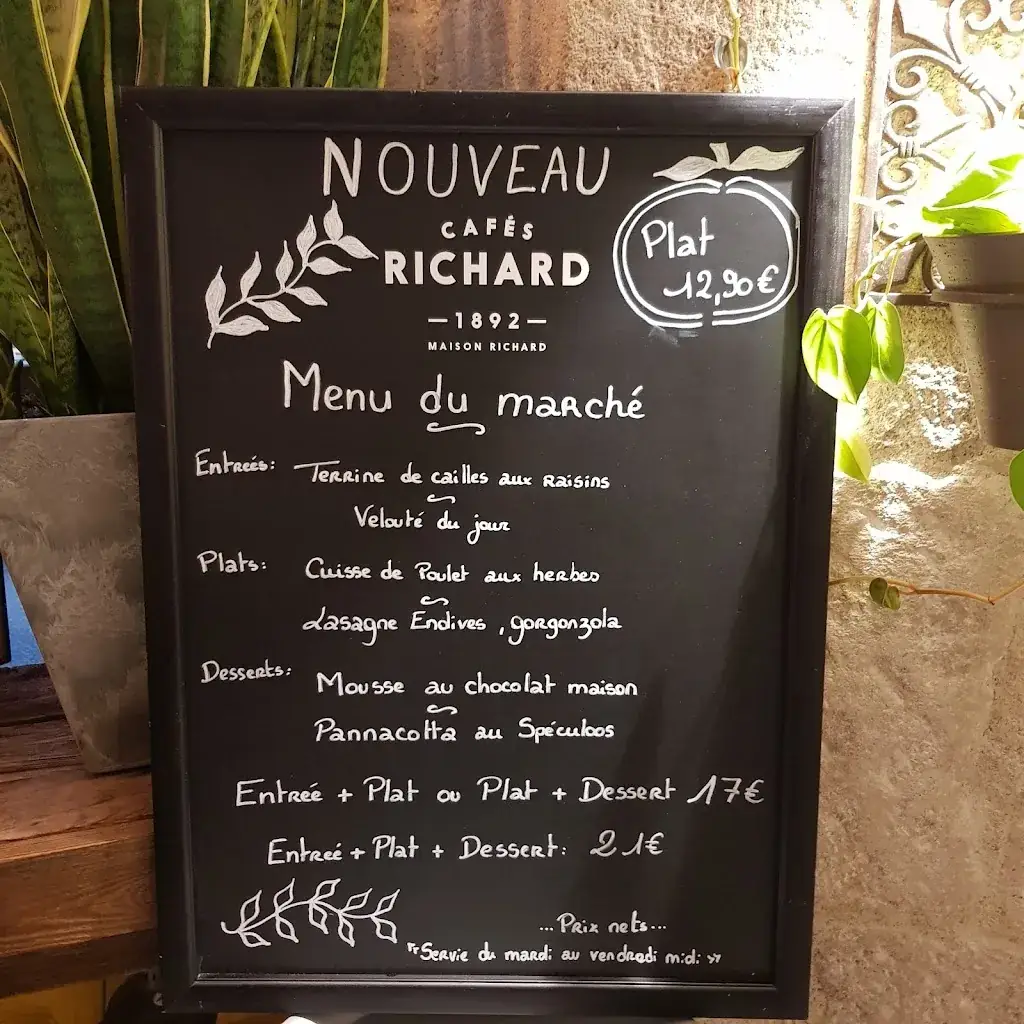 NOUVEAU
CAFÉS
RICHARD
—1892—
MAISON RICHARD
Plat
12,90€
Menu du marché
Entreés: Terrine de cailles aux raisins
Velouté du jour
Plats: Cuisse de Poulet aux herbes
Lasagne Endives, gorgonzola
Desserts: Mousse au chocolat maison
Pannacotta au Spéculoos
Entreé + Plat ou Plat + Dessert 17€
Entreé + Plat + Dessert: 21€
...Prix nets...
"Servie du mardi au vendredi midi"